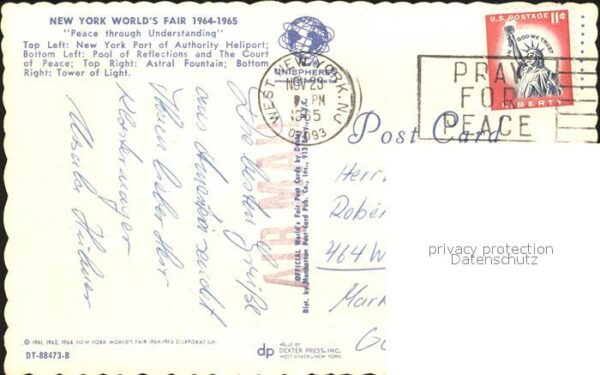 NEW YORK WORLD'S FAIR 1964-1965
"Peace through Understanding"
Top Left: New York Port of Authority Heliport;
Bottom Left: Pool of Reflections and The Court
of Peace; Top Right: Astral Fountain; Bottom
Right: Tower of Light.
UNISPHERE
WEST NEW YORK, N.J.
NOV 23
PM
1965
07093
U.S. POSTAGE 11¢
IN GOD WE TRUST
LIBERTY
PRAY
FOR
PEACE
Post Card
AIR MAIL
Die besten Grüße
aus Amerika sendet
Ihnen lieber Herr
Klostermayer
Ursula Hübner
OFFICIAL World's Fair Post Cards by Dexter
Dist. by Manhattan Post Card Pub. Co., Inc., 913
Herrn
Rober
464 W
Mark
privacy protection
Datenschutz
© 1961, 1962, 1964 NEW YORK WORLD'S FAIR 1964-1965 CORPORATION
DT-88473-B
dp
MADE BY
DEXTER PRESS, INC.
WEST NYACK, NEW YORK